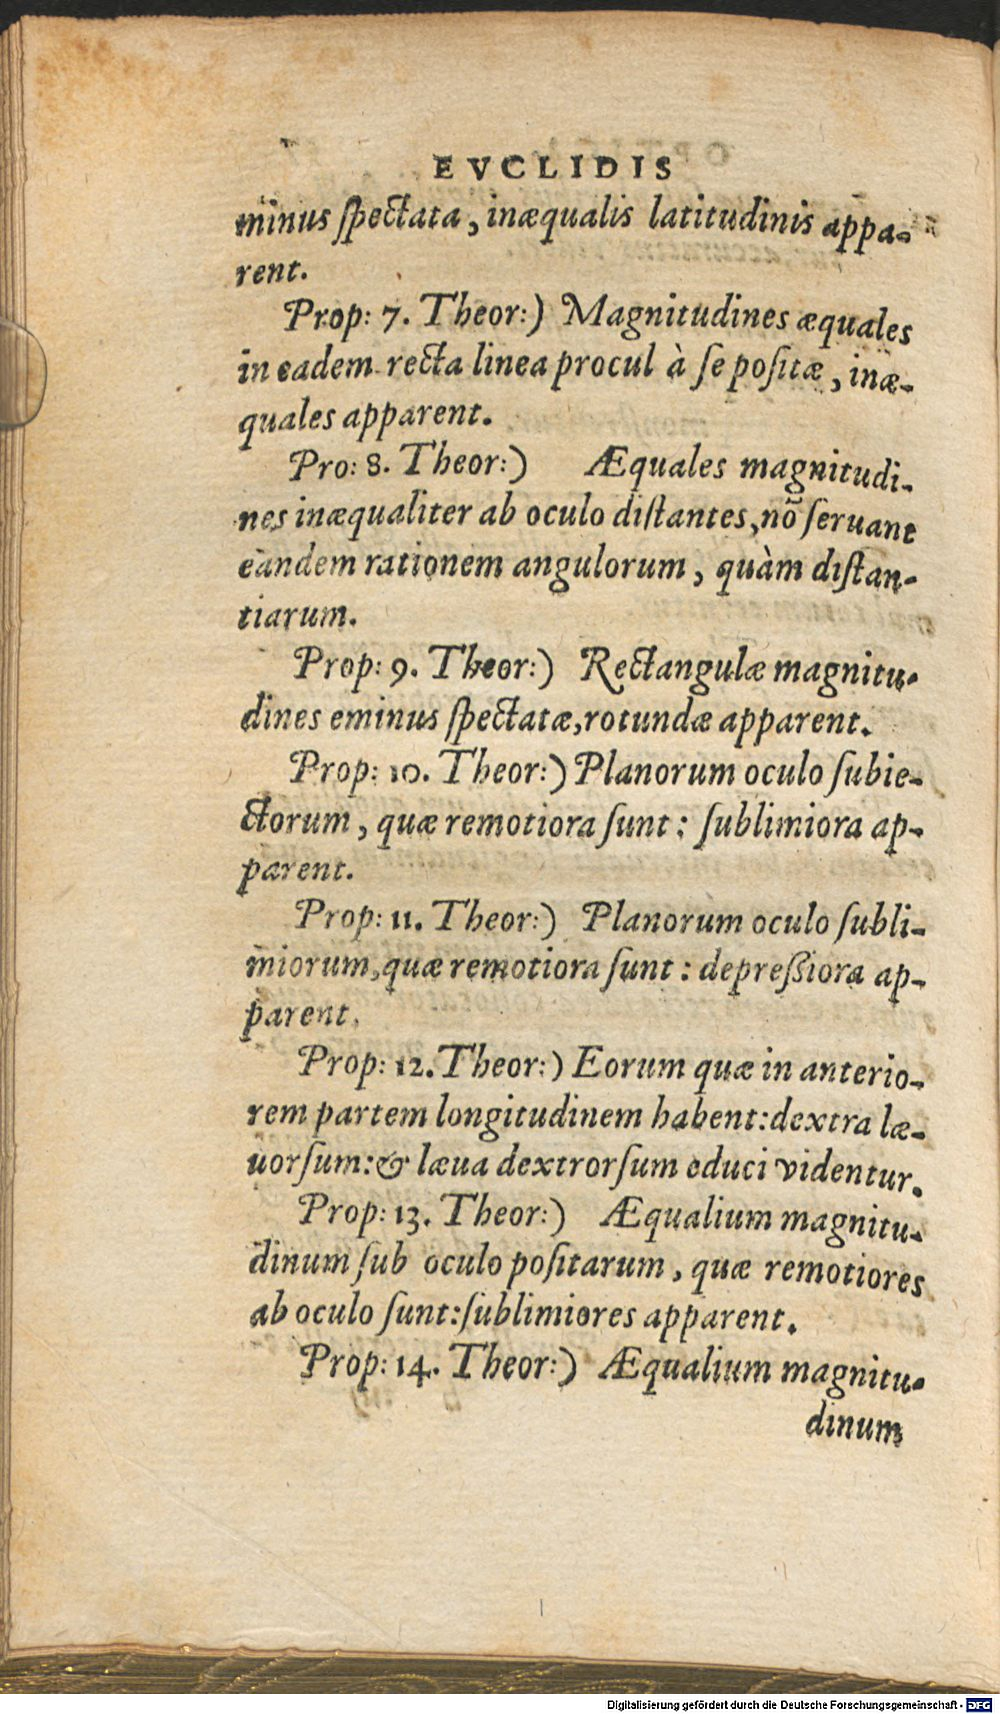 EVCLIDIS
minus ſpectata, inæqualis latitudinis appa-
rent.
Prop: 7. Theor:) Magnitudines æquales
in eadem recta linea procul à ſe poſitæ, inæ-
quales apparent.
Pro: 8. Theor:) Æquales magnitudi-
nes inæqualiter ab oculo diſtantes, nō ſeruant
eandem rationem angulorum, quàm diſtan-
tiarum.
Prop: 9. Theor:) Rectangulæ magnitu-
dines eminus ſpectatæ, rotundæ apparent.
Prop: 10. Theor:) Planorum oculo ſubie-
ctorum, quæ remotiora ſunt: ſublimiora ap-
parent.
Prop: 11. Theor:) Planorum oculo ſubli-
miorum, quæ remotiora ſunt: depreßiora ap-
parent.
Prop: 12. Theor:) Eorum quæ in anterio-
rem partem longitudinem habent: dextra læ-
uorſum: & læua dextrorſum educi videntur.
Prop: 13. Theor:) Æqualium magnitu-
dinum ſub oculo poſitarum, quæ remotiores
ab oculo ſunt: ſublimiores apparent.
Prop: 14. Theor:) Æqualium magnitu-
dinum
Digitalisierung gefördert durch die Deutsche Forschungsgemeinschaft - DFG